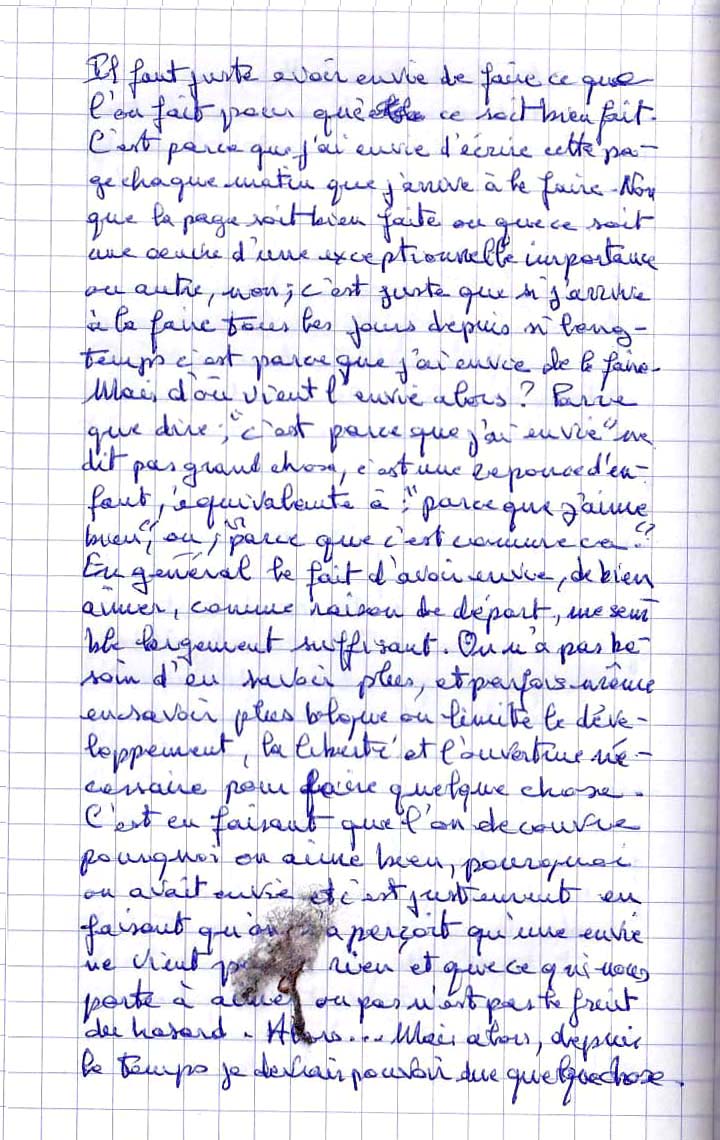 Il faut juste avoir envie de faire ce que
l'on fait pour que ce soit bien fait.
C'est parce que j'ai envie d'écrire cette pa-
ge chaque matin que j'arrive à le faire. Non
que la page soit bien faite ou que ce soit
une oeuvre d'une exceptionnelle importance
ou autre, non ; c'est juste que si j'arrive
à le faire tous les jours depuis si long-
temps c'est parce que j'ai envie de le faire.
Mais d'où vient l'envie alors ? Parce
que dire ; "c'est parce que j'ai envie" ne
dit pas grand chose, c'est une reponce d'en-
fant, équivalente à ; "parce que j'aime
bien", ou ; "parce que c'est comme ca".
En général le fait d'avoir envie, de bien
aimer, comme raison de départ, me sem
ble largement suffisant. On n'a pas be-
soin d'en savoir plus, et parfois même
en savoir plus bloque ou limite le déve-
loppement, la liberté et l'ouverture né-
cessaire pour faire quelque chose.
C'est en faisant que l'on decouvre
pourquoi on aime bien, pourquoi
on avait envie et c'est justement en
faisant qu'on s'aperçoit qu'une envie
ne vient rien et que ce qui nous
porte à aimer ou pas n'est pas le fruit
du hasard. Alors... Mais alors, depuis
le temps je devrais pouvoir dire quelque chose.